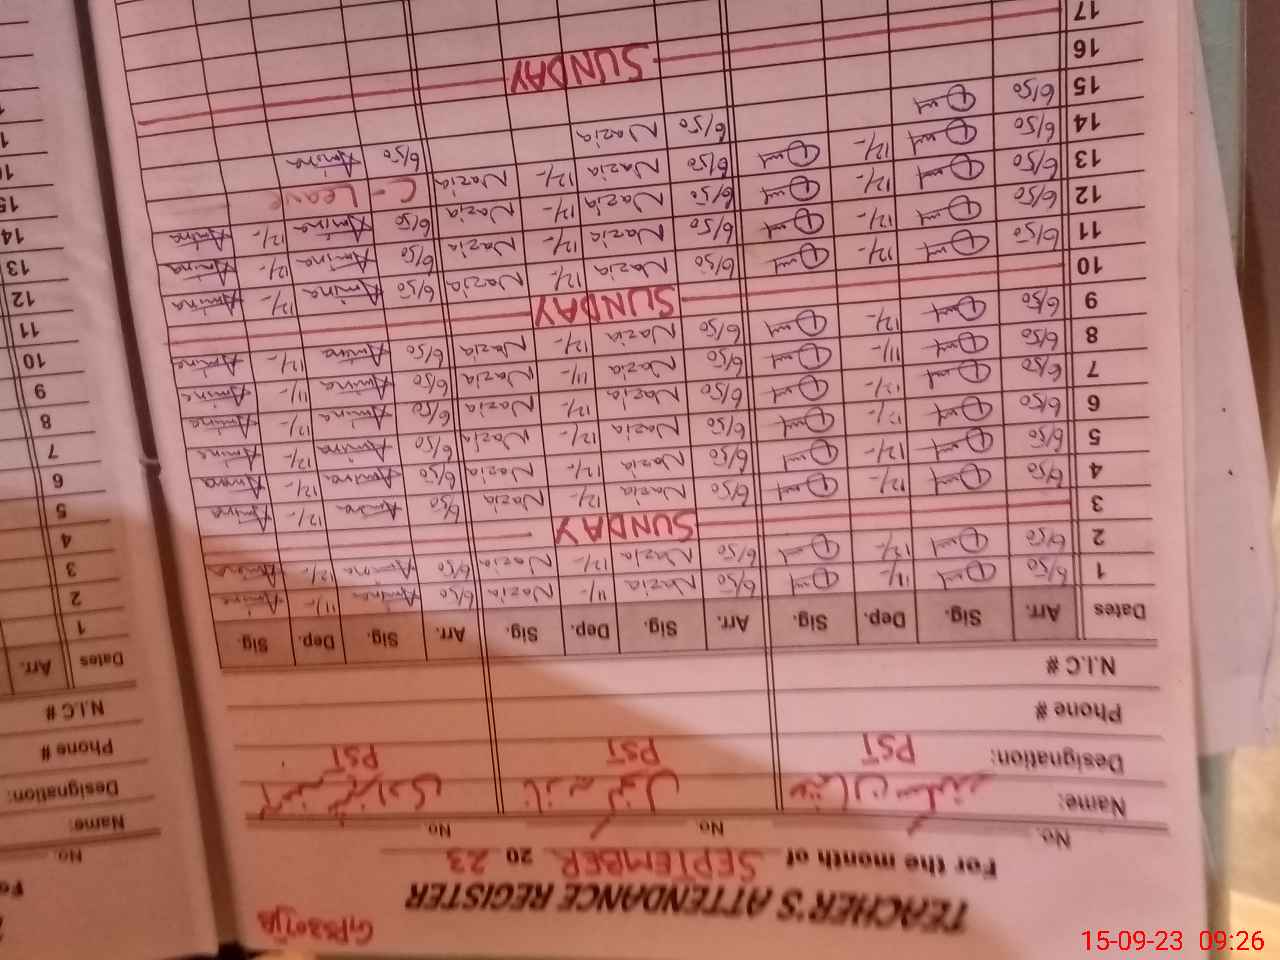 GPS 307JB
TEACHER'S ATTENDANCE REGISTER
For the month of SEPTEMBER 20 23
No. No. No.
Name: نازیہ کنول
Designation: PST PST PST
Phone #
N.I.C #
Dates Arr. Sig. Dep. Sig. Arr. Sig. Dep. Sig. Arr. Sig. Dep. Sig.
1 6/50 11/- 6/50 Nazia 11/- Nazia 6/50 Amina 11/- Amina
2 6/50 12/- 6/50 Nazia 12/- Nazia 6/50 Amina 12/- Amina
3 SUNDAY
4 6/50 12/- 6/50 Nazia 12/- Nazia 6/50 Amina 12/- Amina
5 6/50 12/- 6/50 Nazia 12/- Nazia 6/50 Amina 12/- Amina
6 6/50 12/- 6/50 Nazia 12/- Nazia 6/50 Amina 12/- Amina
7 6/50 12/- 6/50 Nazia 12/- Nazia 6/50 Amina 12/- Amina
8 6/50 11/- 6/50 Nazia 11/- Nazia 6/50 Amina 11/- Amina
9 6/50 12/- 6/50 Nazia 12/- Nazia 6/50 Amina 12/- Amina
10 SUNDAY
11 6/50 12/- 6/50 Nazia 12/- Nazia 6/50 Amina 12/- Amina
12 6/50 12/- 6/50 Nazia 12/- Nazia 6/50 Amina 12/- Amina
13 6/50 12/- 6/50 Nazia 12/- Nazia 6/50 Amina 12/- Amina
14 6/50 12/- 6/50 Nazia 12/- Nazia C-Leave
15 6/50 6/50 Nazia 6/50 Amina
16
17 SUNDAY
No.
Name:
Designation:
Phone #
N.I.C #
Dates Arr.
1
2
3
4
5
6
7
8
9
10
11
12
13
14
15
15-09-23 09:26